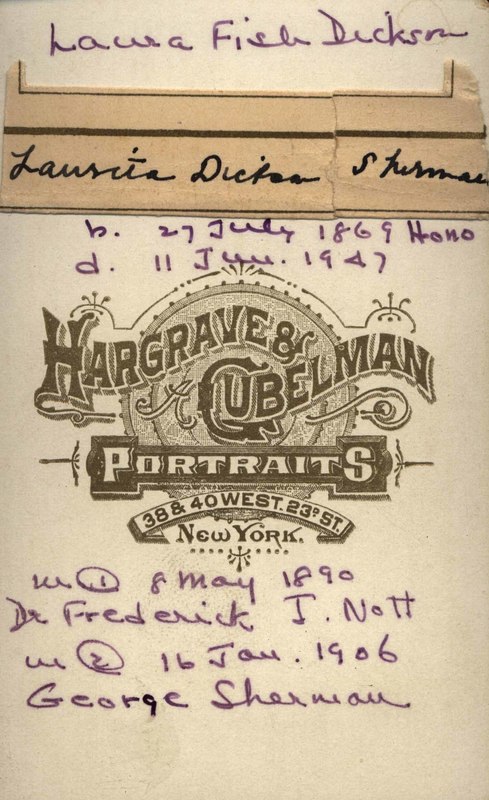 Laura Fish Dickson
Laurita Dickson Sherman
b. 27 July 1869 Hono
d. 11 Jun. 1947
HARGRAVE & GUBELMAN
PORTRAITS
38 & 40 WEST. 23D ST.
NEW YORK.
m ① 8 May 1890
Dr Frederick J. Nott
m ② 16 Jan. 1906
George Sherman